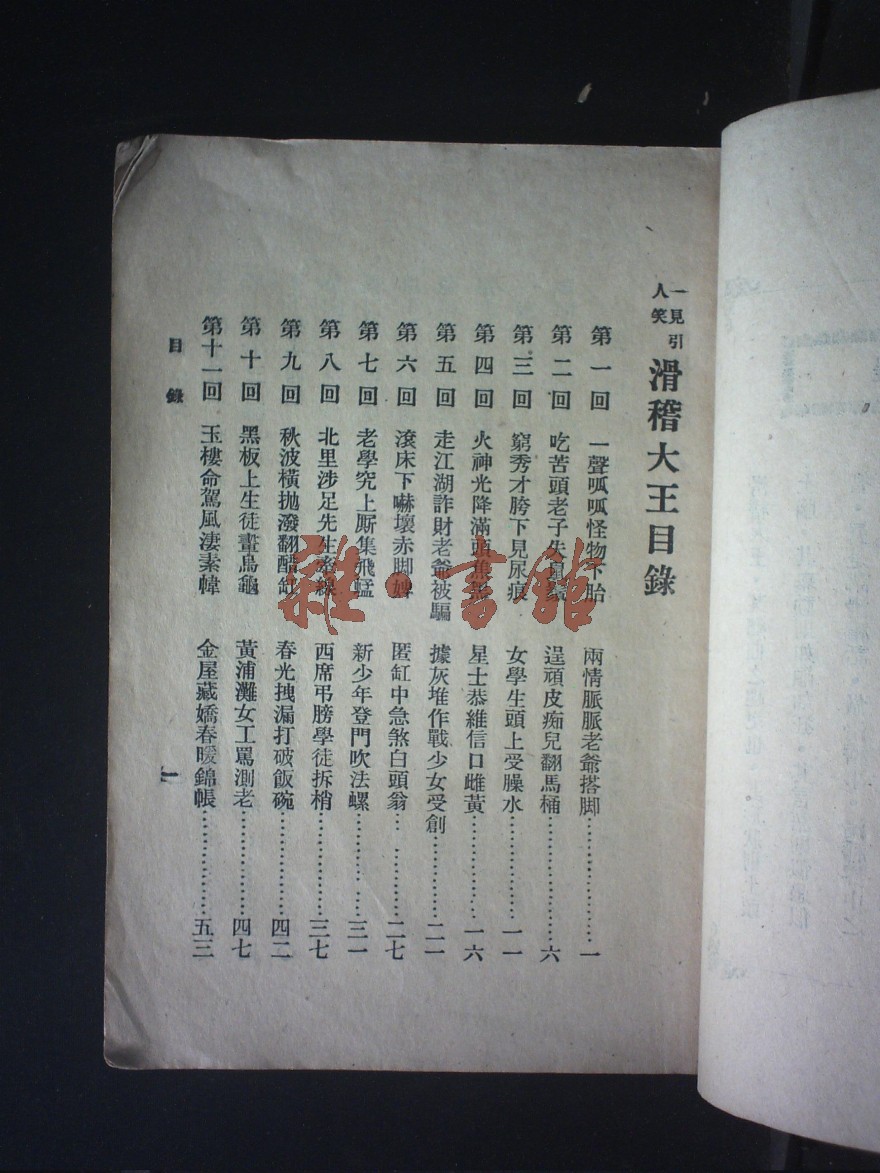 一見引人笑 滑稽大王目錄
第一回 一聲呱呱怪物下胎 兩情脈脈老爺搭脚…………………一
第二回 吃苦頭老子失 逞頑皮痴兒翻馬桶…………………六
第三回 窮秀才胯下見尿痕 女學生頭上受臊水…………………一一
第四回 火神光降滿頭焦 星士恭維信口雌黃…………………一六
第五回 走江湖詐財老爺被騙 據灰堆作戰少女受創…………………二一
第六回 滾床下嚇壞赤脚婢 匿缸中急煞白頭翁…………………二七
第七回 老學究上厠集飛蜢 新少年登門吹法螺…………………三一
第八回 北里涉足先生 線 西席弔膀學徒拆梢…………………三七
第九回 秋波橫拋潑翻醋缸 春光拽漏打破飯碗…………………四二
第十回 黑板上生徒畫烏龜 黃浦灘女工罵測老…………………四七
第十一回 玉樓命駕風淒素幃 金屋藏嬌春暖錦帳…………………五三
目錄
一
雜·書館